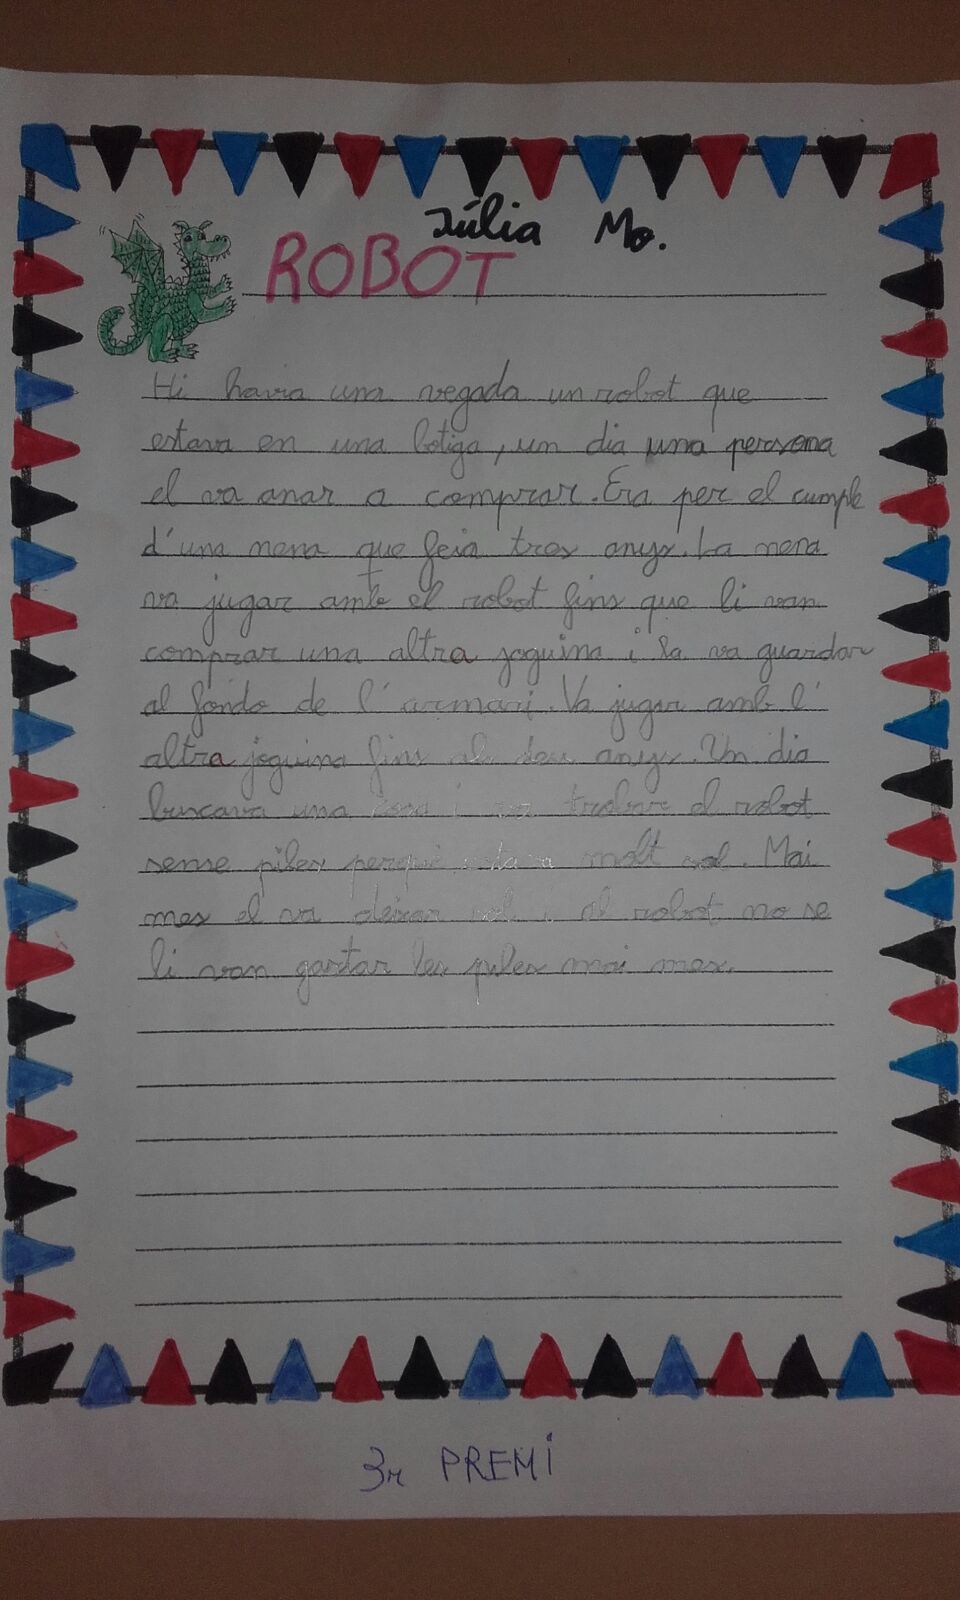 Júlia Mo.
ROBOT
Hi havia una vegada un robot que
estava en una botiga, un dia una persona
el va anar a comprar. Era per el cumple
d'una nena que feia tres anys. La nena
va jugar amb el robot fins que li van
comprar una altra joguina i la va guardar
al fondo de l'armari. Va jugar amb l'
altra joguina fins als deu anys. Un dia
buscava una cosa i va trobar el robot
sense piles perquè estava molt sol. Mai
mes el va deixar sol i al robot no se
li van gastar les piles mai mes.
3r PREMI